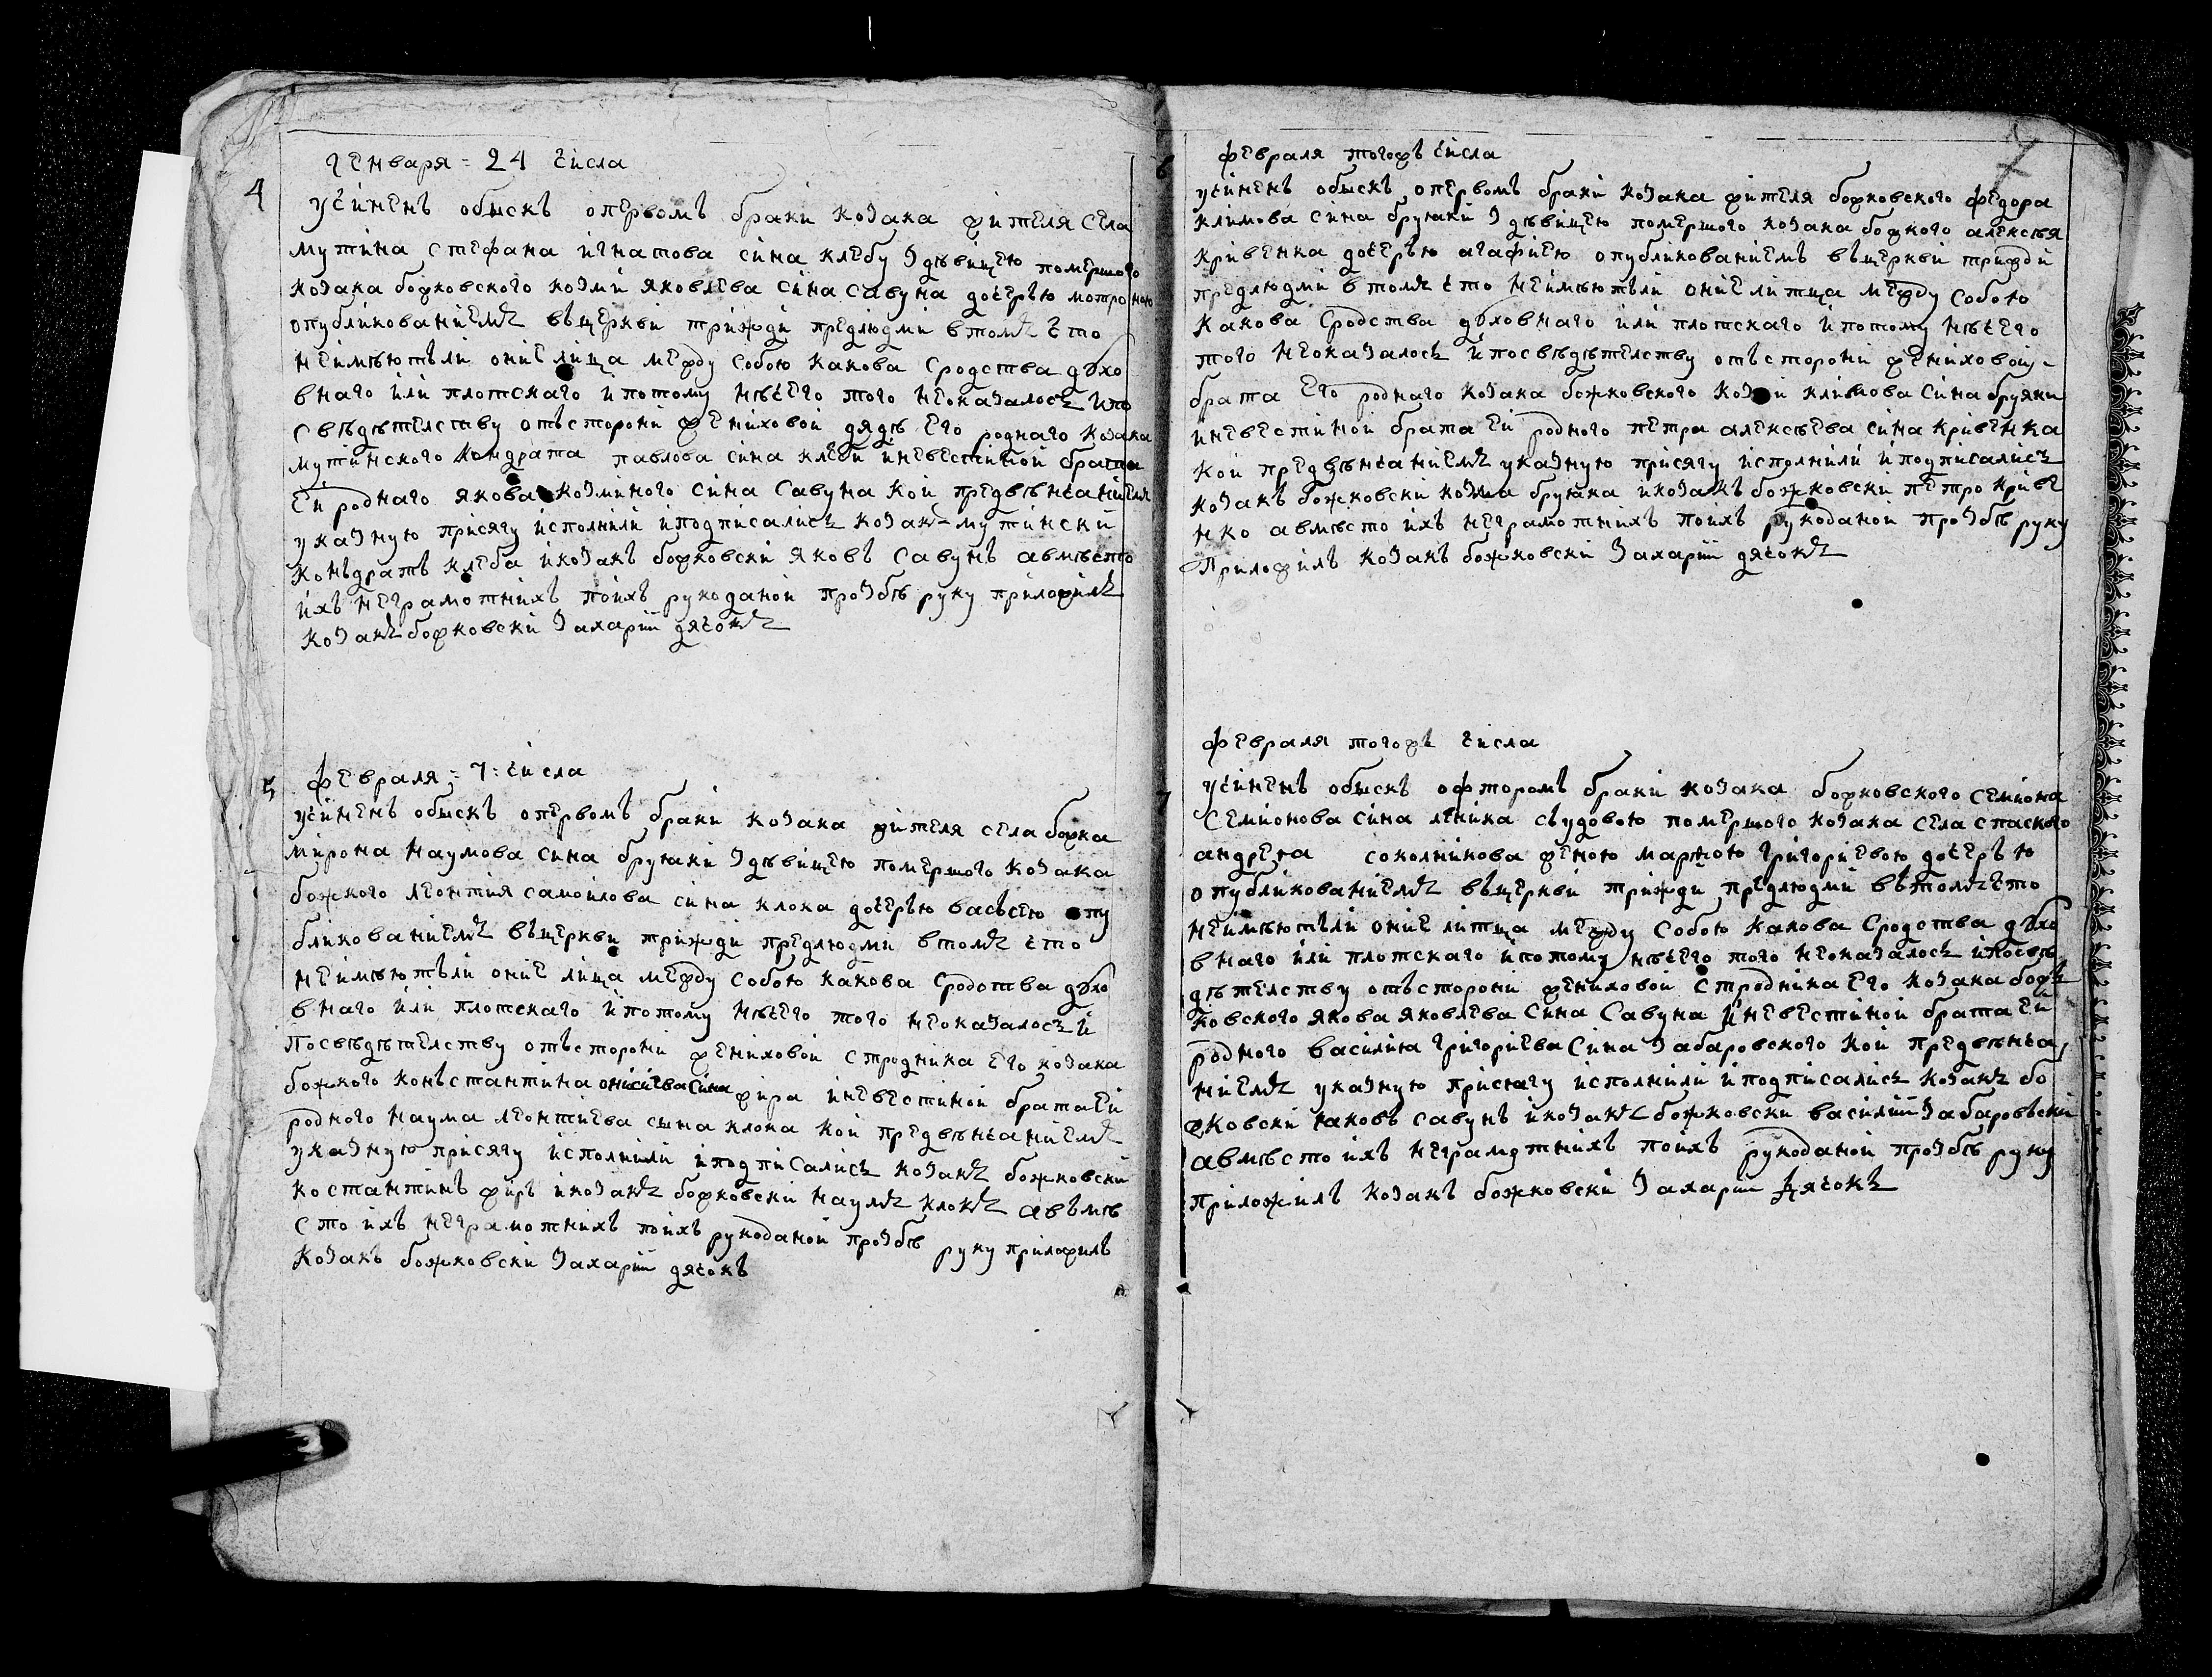 4
генваря = 24 числа
учиненъ обискъ опервомъ браки козака жителя села
мутина стефана игнатова сина клебу здѣвицею помершого
козака божковского козми яковлева сина савуна дочерѣю мотроною
опубликованиемъ въцеркви трижди предлюдми втомъ что
неимѣютъли оние лица между собою какова сродства дхо
внаго или плотскаго ипотому нѣчего того неоказалось ипо
свѣдѣтелставу отъсторони жениховой дядѣ его родного козака
мутинского кондрата павлова сина клеби иневестиной брата
ей родного якова козминого сина савуна кои предвѣнчаниемъ
указную присягу исполнили иподписались козакъ мутински
конъдратъ клеба икозакъ божковски яковъ савунъ авмѣсто
ихъ неграмотнихъ поихъ рукоданой прозбѣ руку приложилъ
козакъ божковски захарій дячокъ
5
февраля = 7: числа
учиненъ обискъ опервомъ браки козака жителя села божка
мирона наумова сина брюяки здѣвицею помершого козака
божкого леонтия самоилова сина клока дочерѣю васѣсею опу
бликованиемъ въцеркви трижди предлюдми втомъ что
неимѣютъли оние лица между собою какова сродства дхо
внаго или плотскаго ипотому нѣчего того неоказалось и
посвѣдѣтелству отъсторони жениховой стродника его козака
божкого конъстантина онисиева сина жира иневестиной брата ей
родного наума леонтиева сына клока кои предвѣнчаниемъ
указную присягу исполнили иподписались козакъ божковски
костантинъ жиръ икозакъ божковски наумъ клокъ авъмѣ
сто ихъ неграмотнихъ поихъ рукоданой прозбѣ руку приложилъ
козакъ божковски захарій дячокъ
7
6
февраля тогожъ числа
учиненъ обискъ опервомъ браки козака жителя божковского федора
климова сина брюяки здѣвицею помершого козака божкого алексѣя
кривенка дочерѣю агафиею опубликованиемъ въцеркви трижди
предлюдми втомъ что неимѣютъли оние литца между собою
какова сродства дховнаго или плотскаго ипотому нѣчего
того неоказалось ипосвѣдѣтелству отъсторони жениховой
брата его родного козака божковского козми климова сина бруяки
иневестиной брата ей родного петра алексѣева сина кривенка
кои предвѣнчаниемъ указную присягу исполнили иподписались
козакъ божковски козма брюяка икозакъ божковски петро криве
нко авмѣсто ихъ неграмотнихъ поихъ рукоданой прозбѣ руку
приложилъ козакъ божковски захарій дячокъ
7
февраля тогожъ числа
учиненъ обискъ офторомъ браки козака божковского семиона
семионова сина леника съудовою помершого козака села спаского
андрея соколникова женою марѳою григориевою дочерѣю
опубликованиемъ въцеркви трижди предлюдми вътомъчто
неимѣютъли оние литца между собою какова сродства дхо
внаго или плотскаго ипотому нѣчего того неоказалось ипосвѣ
дѣтелству отъсторони жениховой стродника его козака бож
ковского якова яковлева сина савуна иневестиной брата ей
родного василия григориева сина забаровского кои предвѣнча
ниемъ указную присягу исполнили иподписались козакъ бо
жковски яковъ савунъ икозакъ божковски василій забаровъски
авмѣсто ихъ неграмотнихъ поихъ рукоданой прозбѣ руку
приложилъ козакъ божковски захарій дячокъ